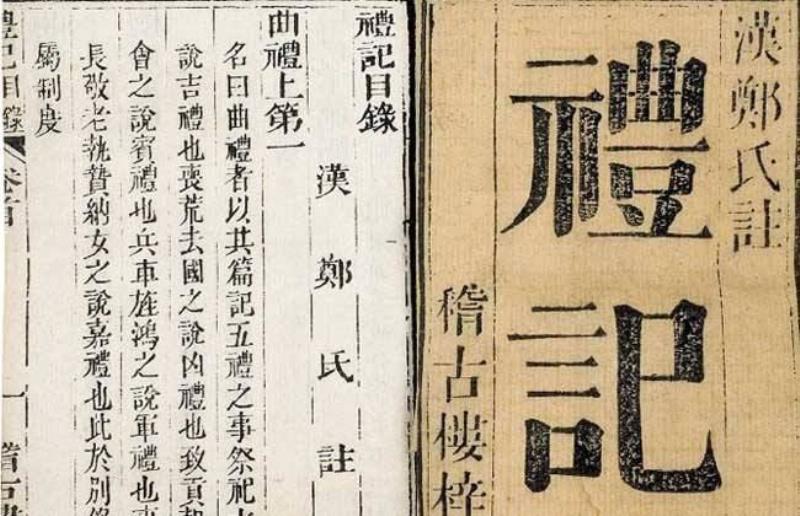 漢鄭氏註
禮記
稽古樓梓
禮記目錄
漢鄭氏註
曲禮上第一
名曰曲禮者以其篇記五禮之事祭祀
說吉禮也喪荒去國之說凶禮也致貢
會之說賓禮也兵車旌鴻之說軍禮也事
長敬老執贄納女之說嘉禮也此於別錄
屬制度
禮記目錄 卷首 一 稽古樓